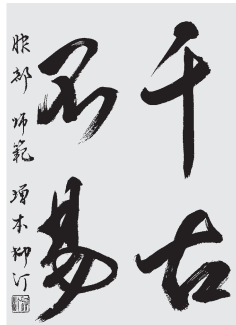 千古
不易
服部 師範 瑾本柳汀